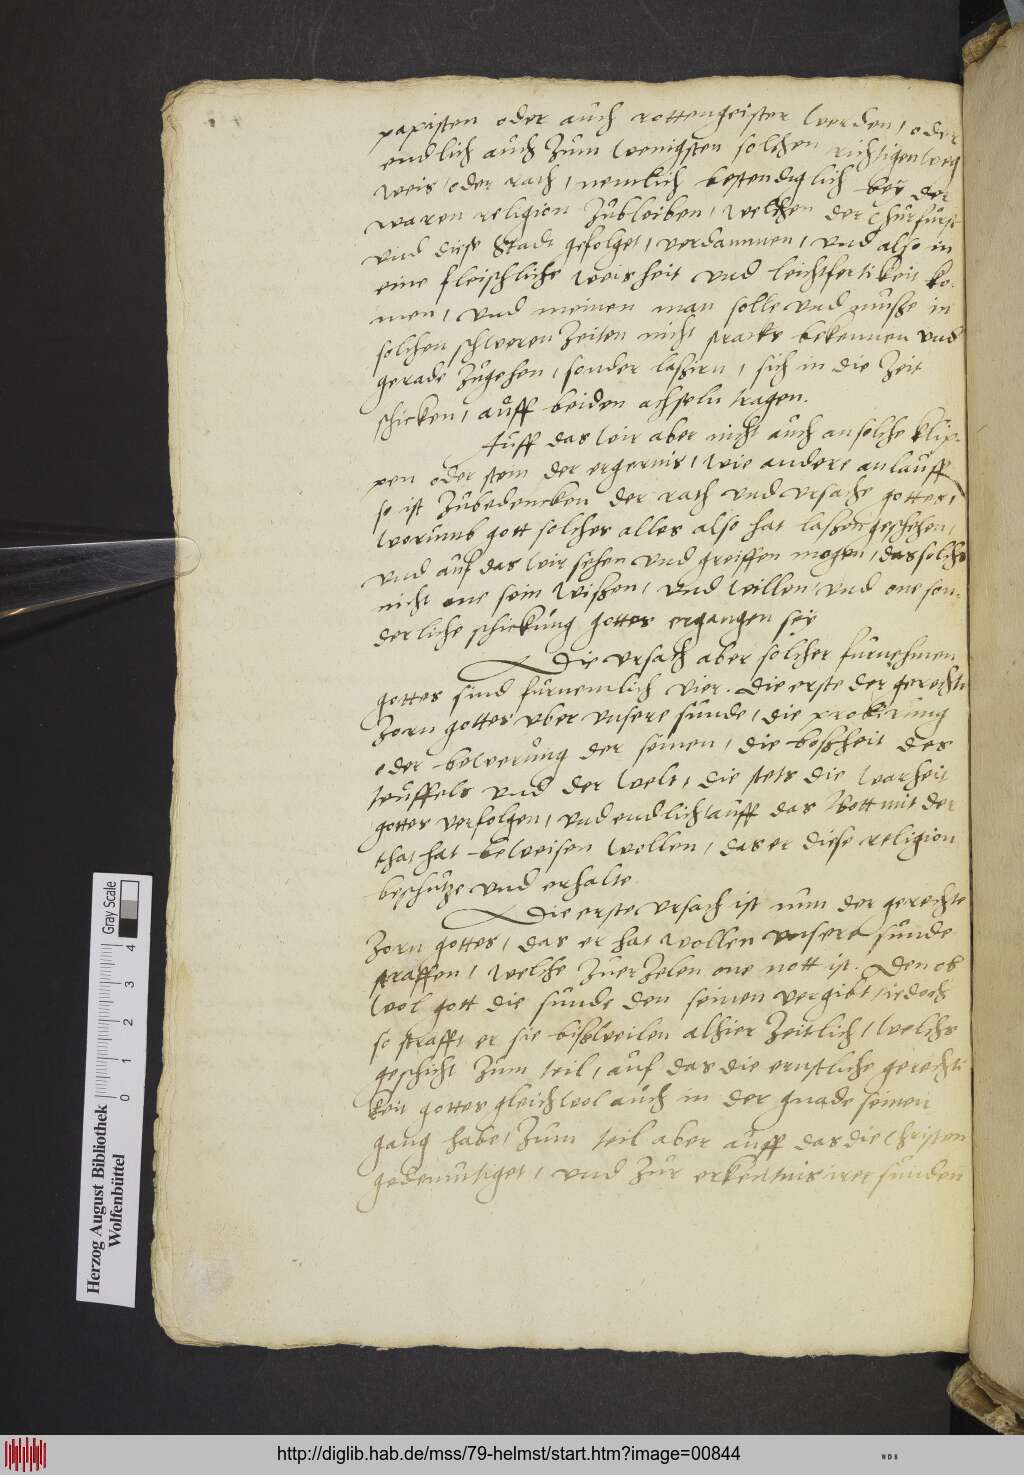 papisten oder auch rottengeister werden, oder
endlich auch zum wenigsten solchen richtigen weg
weis, oder rath, nemlich bestendiglich bey der
waren religion zubleiben, welchen der Churfurst
vnd diese Stadt gefolget, verdammen, vnd also in
eine fleischliche weisheit vnd leichtfertikeit ko-
men, vnd meinen man solle vnd muße in
solchen schweren zeiten nicht stracks bekennen vnd
gerade zugehen, sonder laßirn, sich in die zeit
schicken, auff beiden achseln tragen.
Auff das wir aber nicht auch an solche klip-
pen oder stein der ergernis, wie andere anlauff
so ist zubedencken der rath vnd vrsache gottes,
worumb gott solches alles also hat laßen geschehen,
vnd auf das wir sehen vnd greiffen mogen, das solchs
nicht one sein wißen, vnd willen, vnd one son-
derliche schickung gottes ergangen sey
Die vrsach aber solcher furnehmen
gottes sind furnemlich vier. Die erste der gerechte
zorn gottes vber vnsere sunde, die probirung
oder bewerung der seinen, die boßheit des
teuffels vnd der welt, die stets die warheit
gottes verfolgen, vnd endlich auff das Gott mit der
that hat beweisen wollen, das er diese religion
beschutze vnd erhalte
Die erste vrsach ist nun der gerechte
zorn gottes, das er hat wollen vnsere sunde
straffen, welche zuerzelen one nott ist. Den ob
wol gott die sunde den seinen vergibt, iedoch
so strafft er sie bißweilen alhier zeitlich, welchs
geschicht zum teil, auf das die ernstliche gerechti
keit gottes gleichwol auch in der gnade seinen
gang habe, zum teil aber auff das die Christen
gedemutiget, vnd zur erkentnis irer sunden
Herzog August Bibliothek
Wolfenbüttel
0 1 2 3 4
Gray Scale
http://diglib.hab.de/mss/79-helmst/start.htm?image=00844
WDB